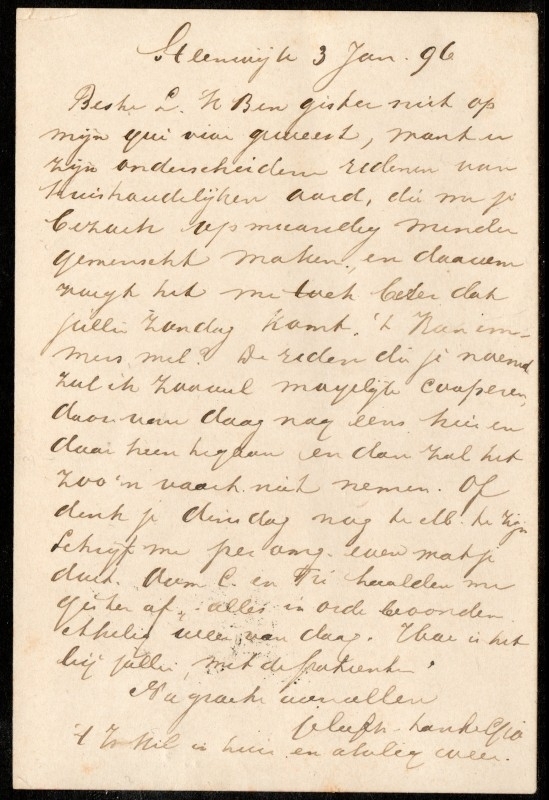 Steenwijk 3 Jan. 96
Beste L. Ik Ben gister niet op
mijn qui vive geweest, want er
zijn onderscheidene redenen van
huishoudelijken aard, die me je
bezoek op maandag minder
gewenscht maken, en daarom
voegt het me toch beter dat
jullie Zondag komt. 't Kan im-
mers wel? De reden die je noemd
zal ik zooveel mogelijk
door van daag nog eens hier en
daar heen te gaan en dan zal het
zoo'n vaart niet nemen. Of
denk je dinsdag nog te te zijn
Schrijf me per omg. even wat je
doet. Oom C. en haalden me
gister af, alles in orde bevonden
weer van daag. Hoe is het
bij jullie, met de patienten?
Na groete aan allen
't is hier en weer.